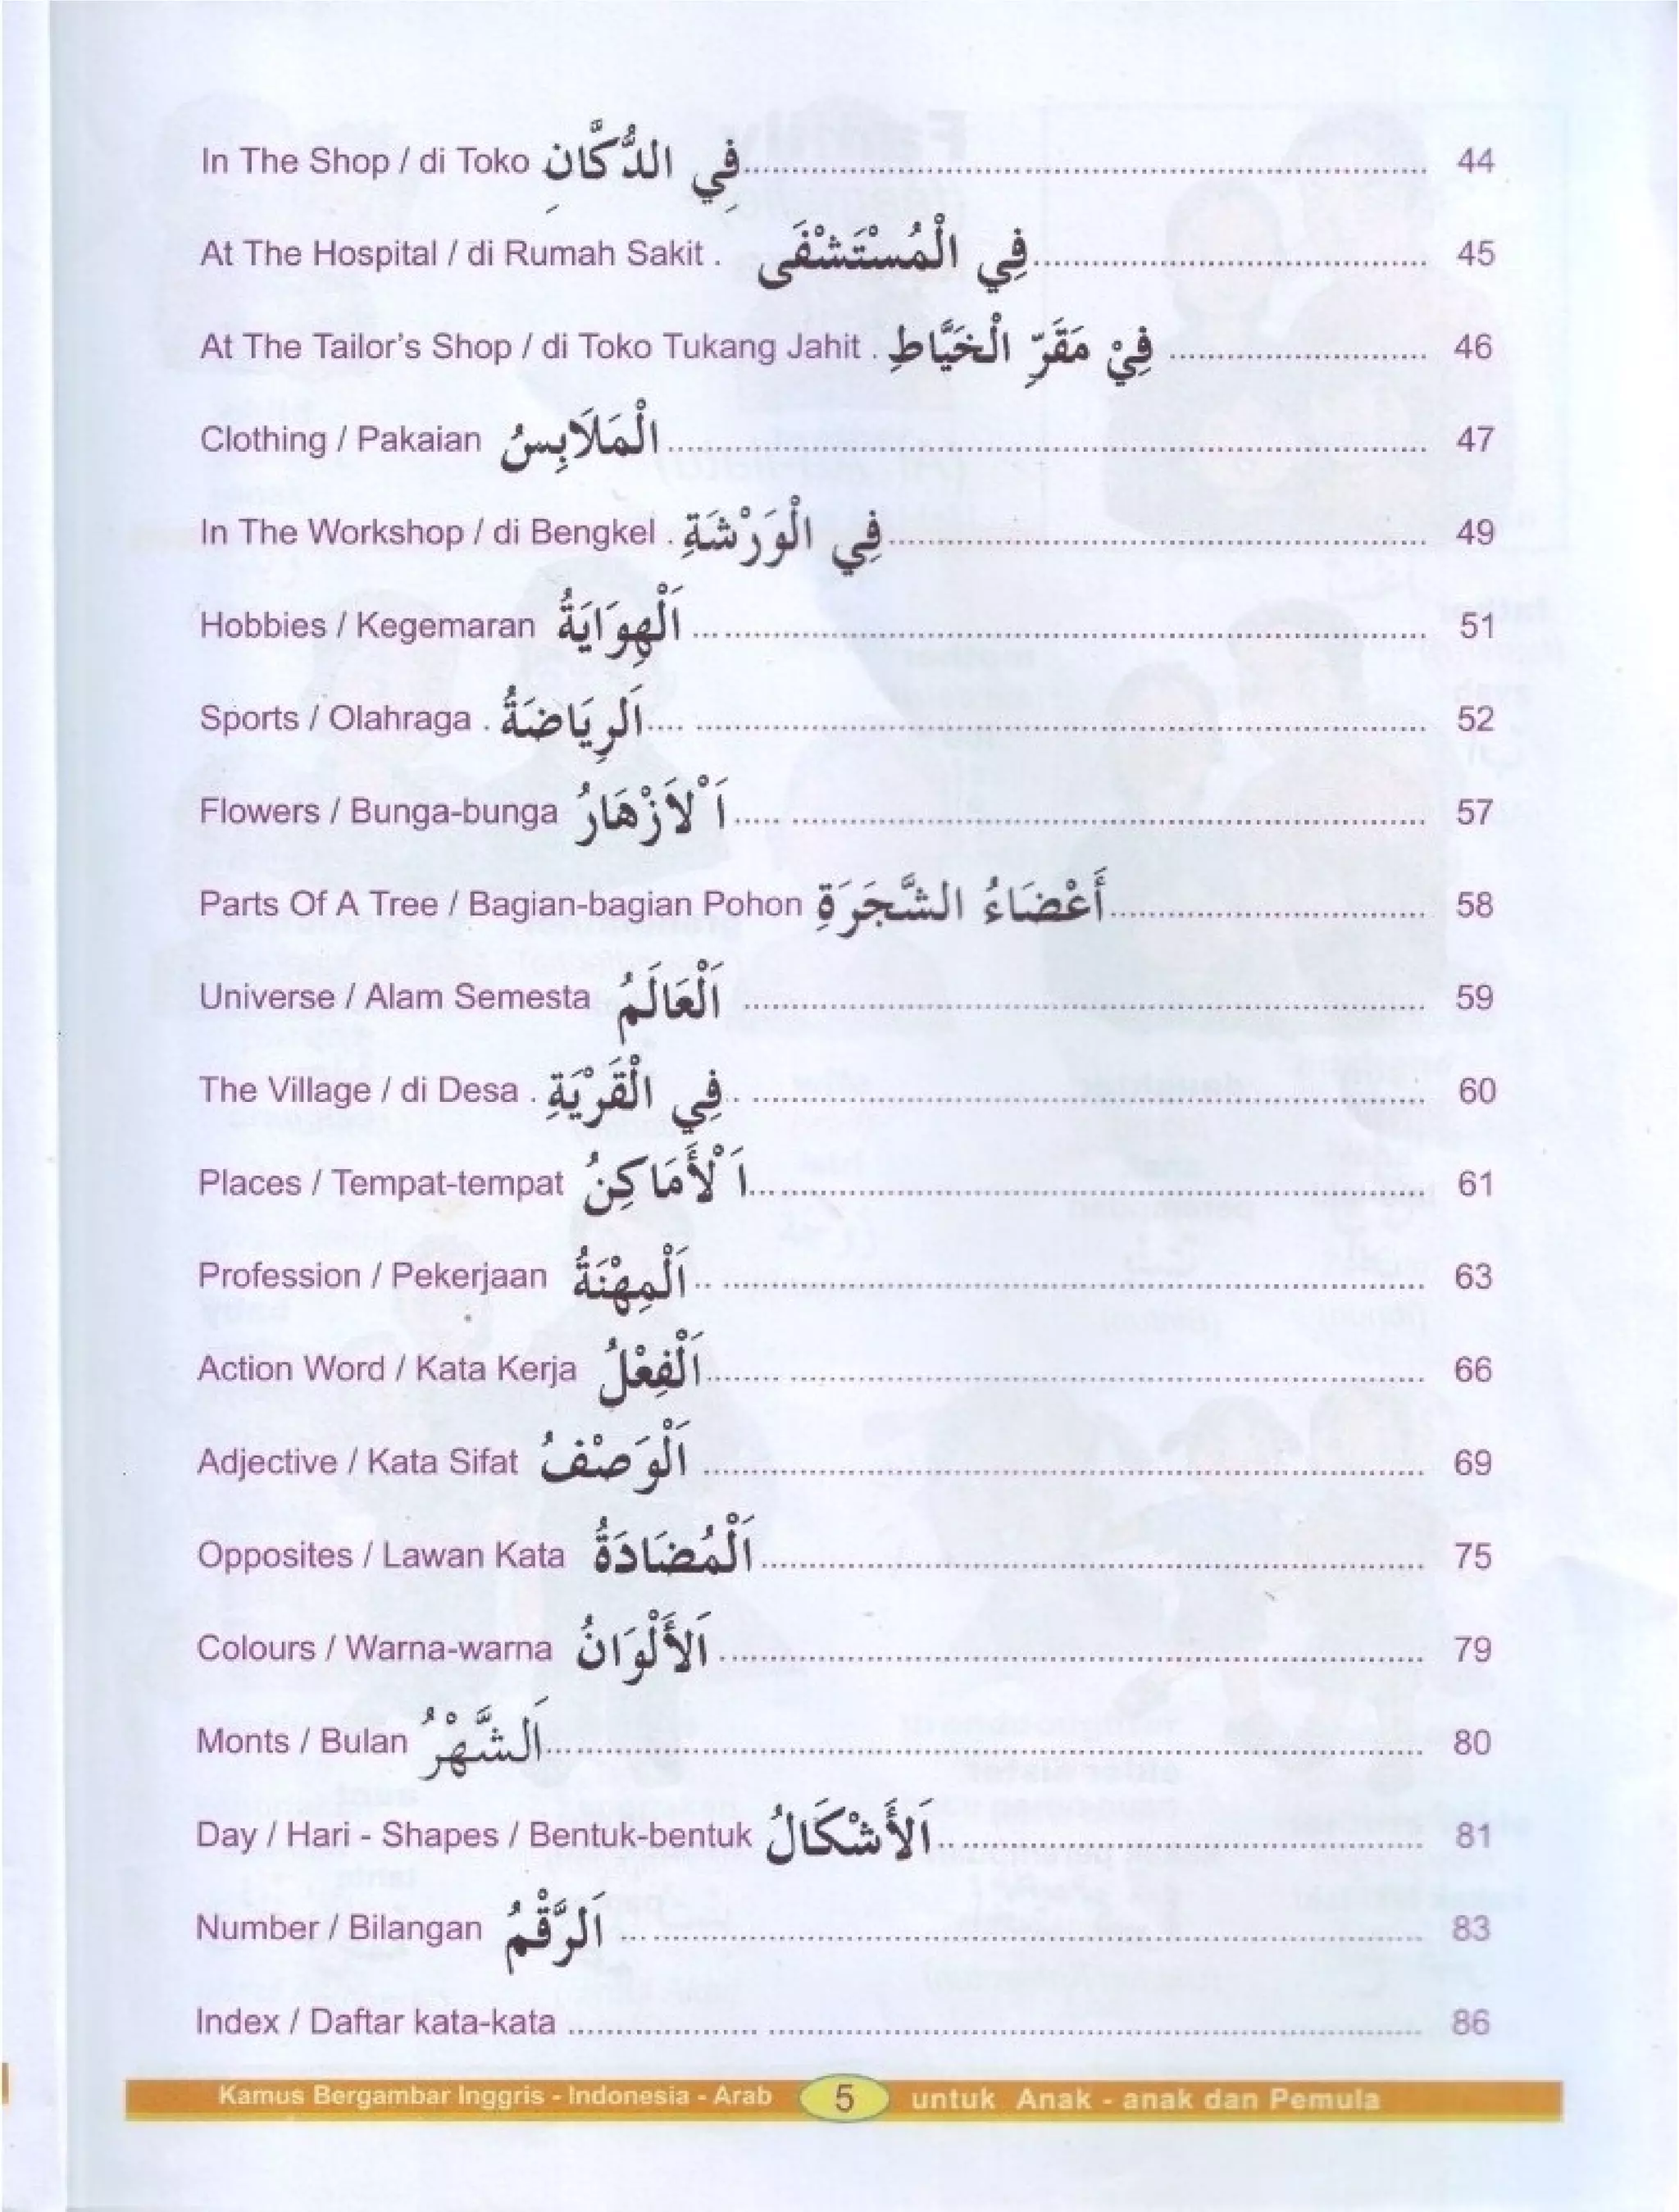 In The Shop / di Toko فِي الدُّكَّانِ ........ 44
At The Hospital / di Rumah Sakit . فِي الْمُسْتَشْفَى ........ 45
At The Tailor's Shop / di Toko Tukang Jahit . فِيْ مَقَرِّ الْخَيَّاطِ ........ 46
Clothing / Pakaian الْمَلَابِسُ ........ 47
In The Workshop / di Bengkel . فِي الْوَرْشَةِ ........ 49
Hobbies / Kegemaran اَلْهِوَايَةُ ........ 51
Sports / Olahraga . اَلرِيَاضَةُ ........ 52
Flowers / Bunga-bunga اَلْاَزْهَارُ ........ 57
Parts Of A Tree / Bagian-bagian Pohon أَعْضَاءُ الشَّجَرَةِ ........ 58
Universe / Alam Semesta اَلْعَالَمُ ........ 59
The Village / di Desa . فِي الْقَرْيَةِ ........ 60
Places / Tempat-tempat اَلْأَمَاكِنُ ........ 61
Profession / Pekerjaan اَلْمِهْنَةُ ........ 63
Action Word / Kata Kerja اَلْفِعْلُ ........ 66
Adjective / Kata Sifat اَلْوَصْفُ ........ 69
Opposites / Lawan Kata اَلْمُضَادَةُ ........ 75
Colours / Warna-warna اَلأَلْوَانُ ........ 79
Monts / Bulan اَلشَّهْرُ ........ 80
Day / Hari - Shapes / Bentuk-bentuk اَلأَشْكَالُ ........ 81
Number / Bilangan اَلرَّقْمُ ........ 83
Index / Daftar kata-kata ........ 86
Kamus Bergambar Inggris - Indonesia - Arab 5 untuk Anak - anak dan Pemula